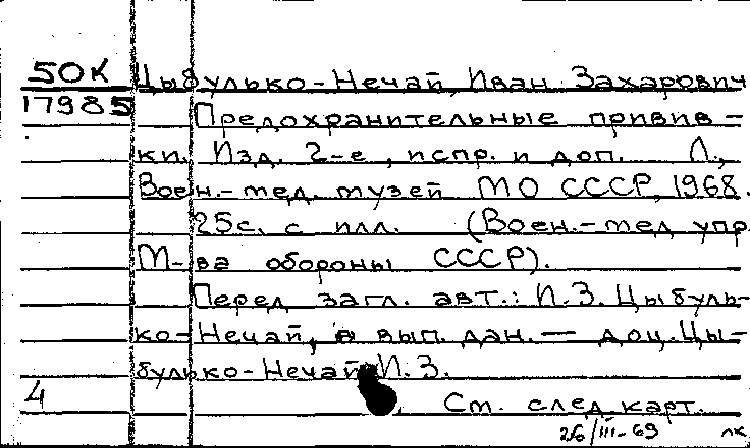 50К Цыбулько-Нечай, Иван Захарович
17985 Предохранительные привив-
ки. Изд. 2-е, испр. и доп. Л.,
Воен.-мед. музей МО СССР, 1968.
25с. с илл. (Воен.-мед. упр
М-ва обороны СССР).
Перед загл. авт.: И.З. Цыбуль-
ко-Нечай, в вып. дан. — доц. Цы-
булько-Нечай И.З.
4 См. след. карт.
26/III-69 лк